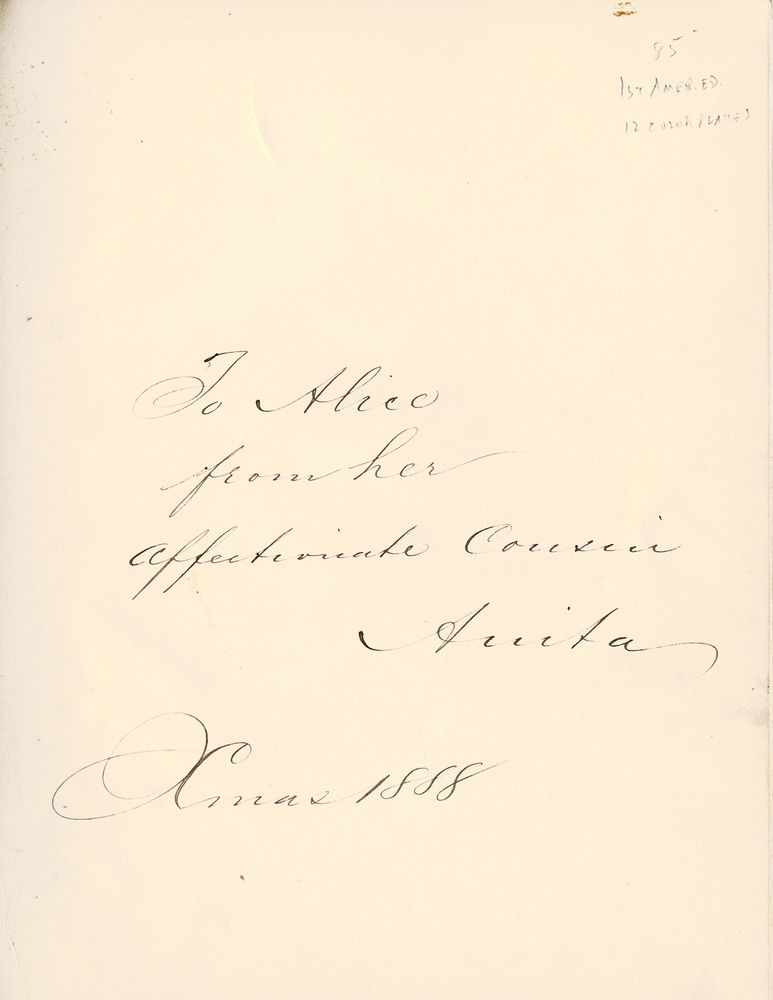 85
1ST AMER. ED.
12 COLOR PLATES
To Alice
from her
affectionate Cousin
Anita
Xmas 1888